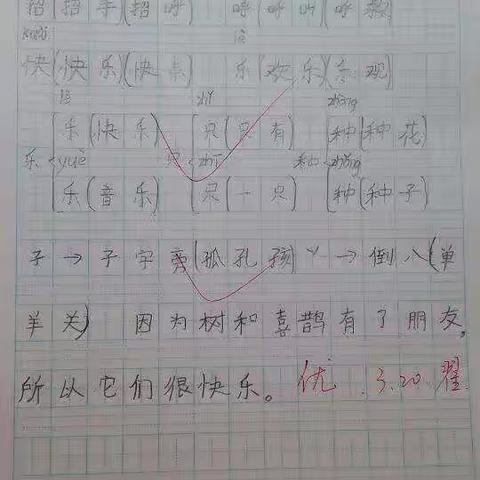 招(招手)(招呼) 呼(呼叫)(呼救)
kuài lè
快(快乐)(快点) 乐(欢乐)(乐观)
lè zhǐ zhǒng
乐(快乐) 只(只有) 种(种花)
乐 yuè 只 zhī 种 zhǒng
乐(音乐) 只(一只) 种(种子)
子→子字旁(孤孔孩) 丷→倒八(单
羊关) 因为树和喜鹊有了朋友,
所以它们很快乐。 优 3.20. 翟